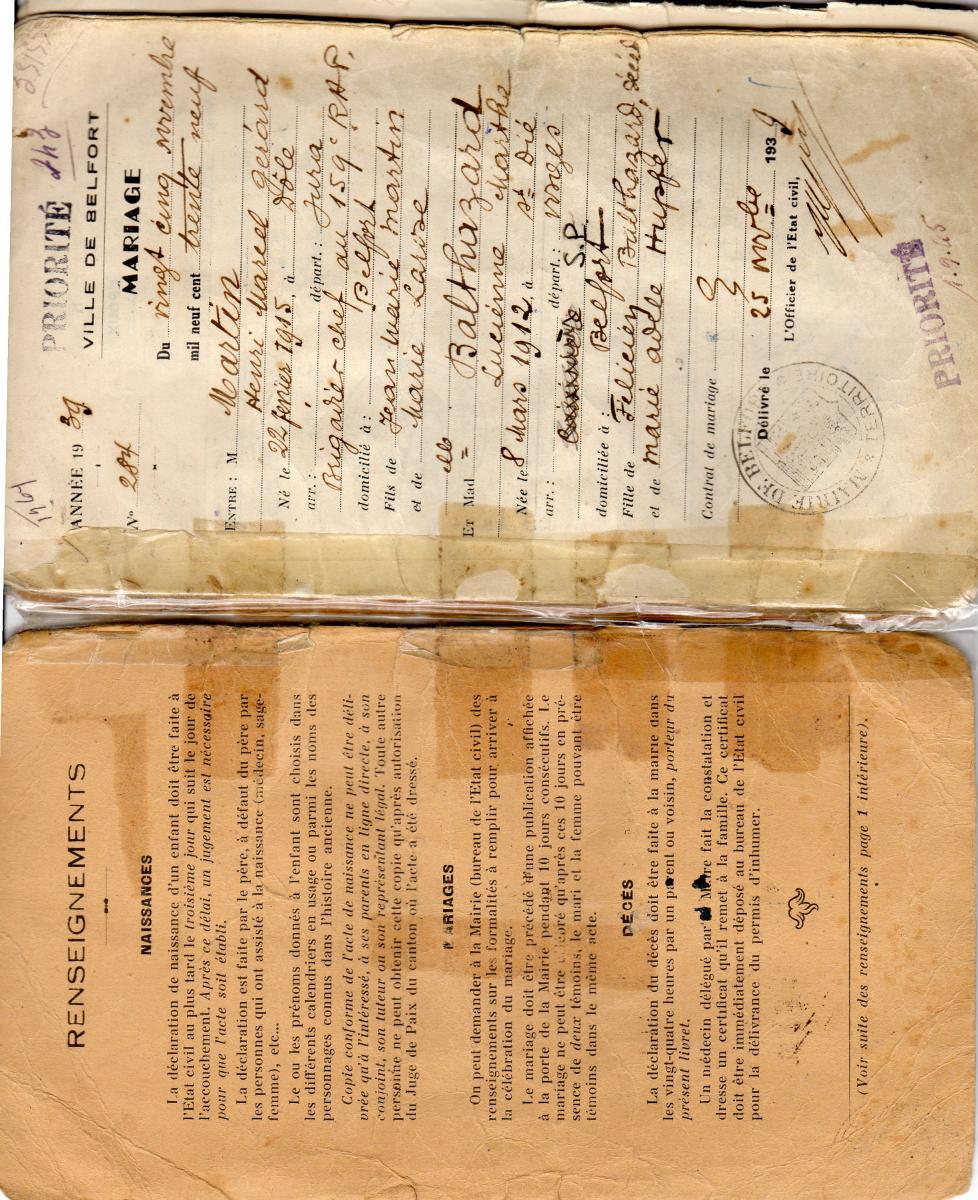 RENSEIGNEMENTS
NAISSANCES
La déclaration de naissance d'un enfant doit être faite à
l'Etat civil au plus tard le troisième jour qui suit le jour de
l'accouchement. Après ce délai, un jugement est nécessaire
pour que l'acte soit établi.
La déclaration est faite par le père, à défaut du père par
les personnes qui ont assisté à la naissance (médecin, sage-
femme), etc...
Le ou les prénoms donnés à l'enfant sont choisis dans
les différents calendriers en usage ou parmi les noms des
personnages connus dans l'histoire ancienne.
Copie conforme de l'acte de naissance ne peut être déli-
vrée qu'à l'intéressé, à ses parents en ligne directe, à son
conjoint, son tuteur ou son représentant légal. Toute autre
personne ne peut obtenir cette copie qu'après autorisation
du Juge de Paix du canton où l'acte a été dressé.
MARIAGES
On peut demander à la Mairie (bureau de l'Etat civil) des
renseignements sur les formalités à remplir pour arriver à
la célébration du mariage.
Le mariage doit être précédé d'une publication affichée
à la porte de la Mairie pendant 10 jours consécutifs. Le
mariage ne peut être célébré qu'après ces 10 jours en pré-
sence de deux témoins, le mari et la femme pouvant être
témoins dans le même acte.
DÉCÈS
La déclaration du décès doit être faite à la mairie dans
les vingt-quatre heures par un parent ou voisin, porteur du
présent livret.
Un médecin délégué par le Maire fait la constatation et
dresse un certificat qu'il remet à la famille. Ce certificat
doit être immédiatement déposé au bureau de l'Etat civil
pour la délivrance du permis d'inhumer.
(Voir suite des renseignements page 1 intérieure).
PRIORITÉ
ANNÉE 1939 VILLE DE BELFORT
N° 284 MARIAGE
Du vingt cinq novembre
mil neuf cent trente neuf
ENTRE : M Martin
Henri Marcel Gérard
Né le 22 février 1915, à Dôle
arr.: départ.: Jura
Brigadier chef au 159e RAP,
domicilié à : Belfort
Fils de Jean Marie Martin
et de Marie Larose
ET Madelle Balthazard
Lucienne Marthe
Née le 8 Mars 1912, à St Dié
arr.: départ.: Vosges
S.P.
domiciliée à : Belfort
Fille de Félicien Balthazard, décédé
et de Marie Adèle Hupfer
Contrat de mariage
Délivré le 25 novbre 1939
L'Officier de l'Etat civil,
MAIRIE DE BELFORT TERRITOIRE
PRIORITÉ
1.9.45